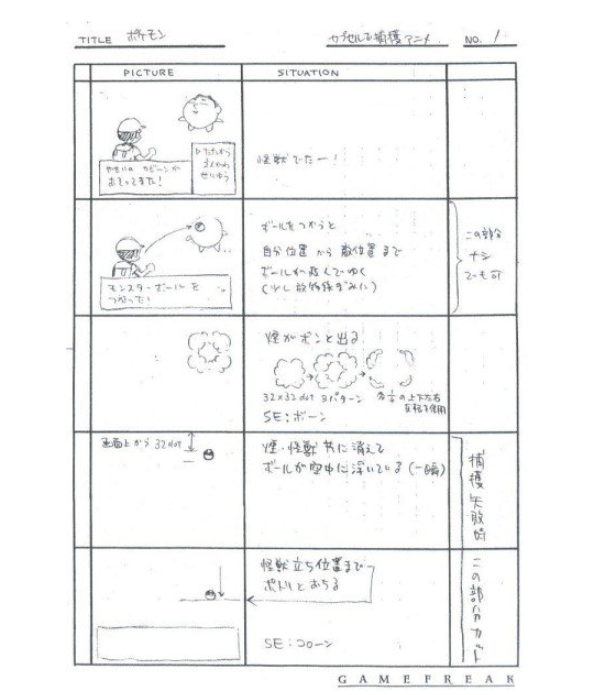 TITLE ポケモン
カプセルで捕獲アニメ
NO. 1
PICTURE
SITUATION
やせいの カビーンが
おそってきた!
▷たたかう
せいゆう
怪獣でたー!
モンスターボールを
つかった!
ボールをつかうと
自分位置から敵位置まで
ボールが飛んでゆく
(少し放物線ぎみに)
この部分
ナシ
でも可
煙がボンと出る
32×32dot 3パターン
各々の上下左右
反転を使用
SE:ボーン
画面上から32dot
煙・怪獣共に消えて
ボールが空中に浮いている(一瞬)
捕獲失敗時
この部分カット
怪獣立ち位置まで
ポトリとおちる
SE:コローン
GAMEFREAK